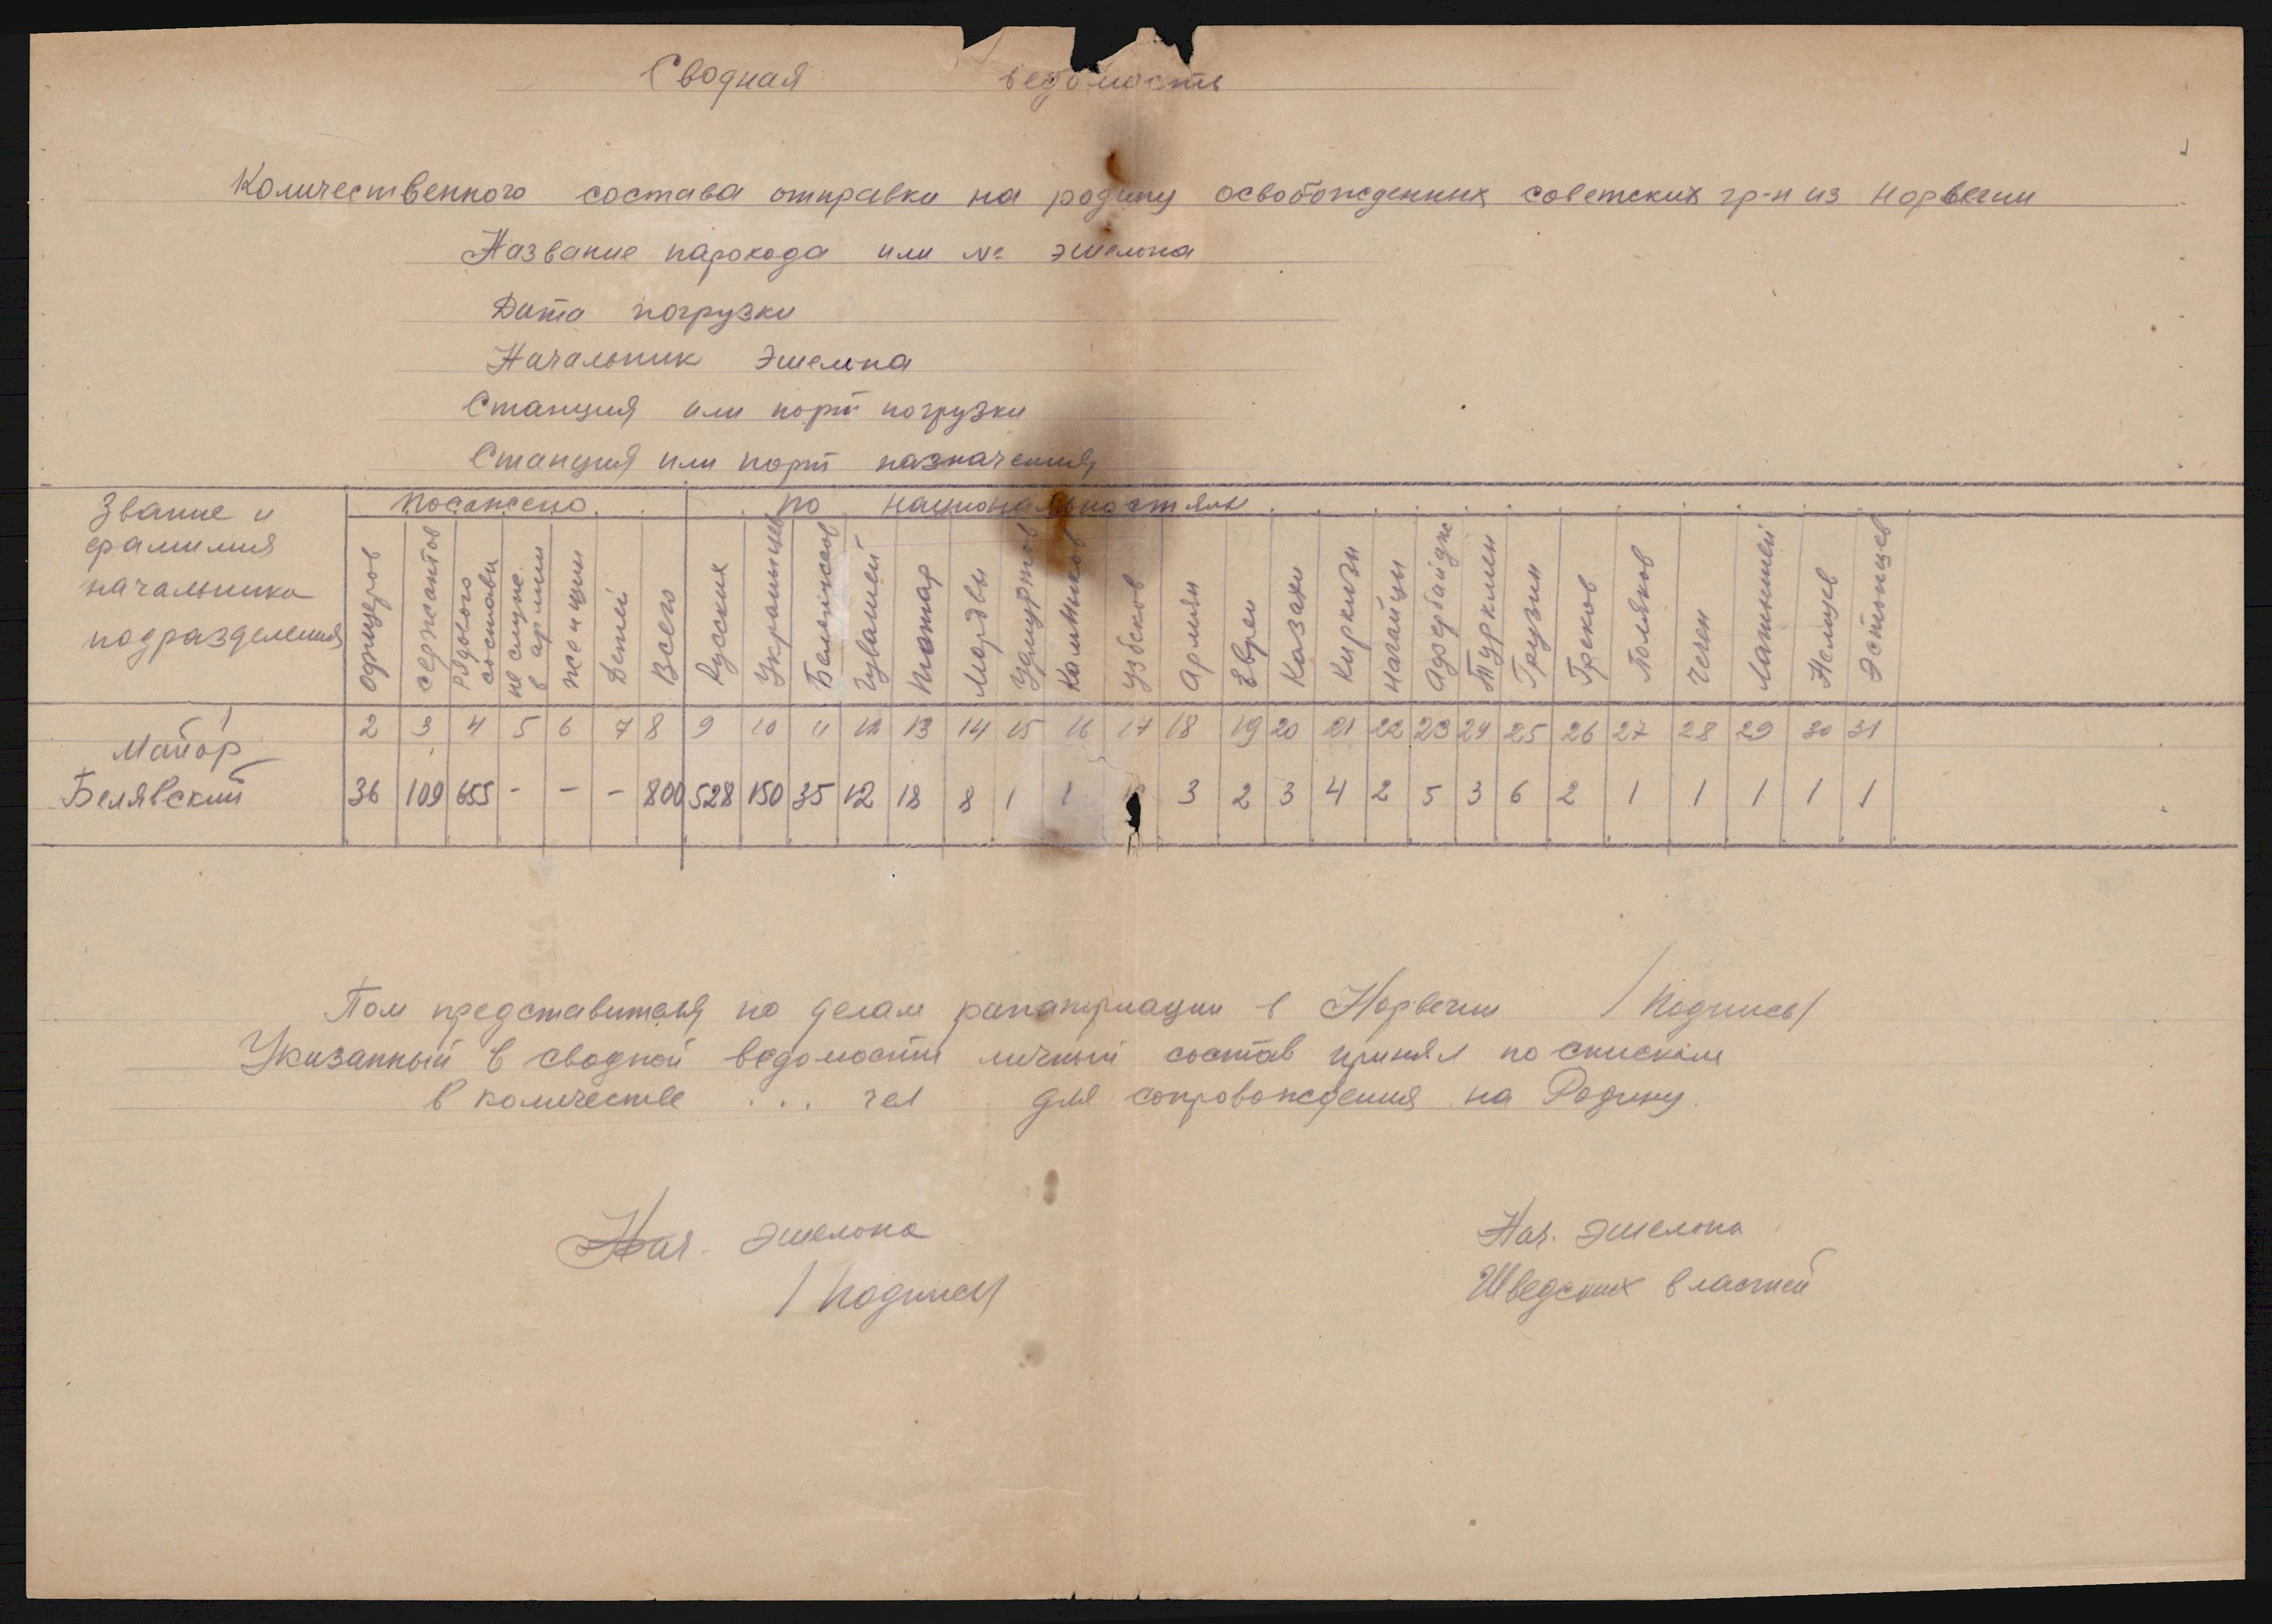 Сводная ведомость
Количественного состава отправки на родину освобожденных советских гр-н из Норвегии
Название парохода или № эшелона
Дата погрузки
Начальник эшелона
Станция или порт погрузки
Станция или порт назначения
Звание и фамилия начальника подразделения | Посажено | по национальностям
офицеров | сержантов | рядового состава | не служ. в армии | женщин | Детей | Всего | Русских | Украинцев | Белоруссов | Чувашей | Татар | Мордвы | Удмуртов | Калмыков | Узбеков | Армян | Евреи | Казахи | Киркизы | Нагайцы | Адзербайдж | Туркмен | Грузин | Греков | Поляков | Чечен | Латышей | Немцев | Эстонцев
1 | 2 | 3 | 4 | 5 | 6 | 7 | 8 | 9 | 10 | 11 | 12 | 13 | 14 | 15 | 16 | 17 | 18 | 19 | 20 | 21 | 22 | 23 | 24 | 25 | 26 | 27 | 28 | 29 | 30 | 31
Майор
Белявский | 36 | 109 | 655 | - | - | - | 800 | 528 | 150 | 35 | 12 | 18 | 8 | 1 | 1 | 3 | 2 | 3 | 4 | 2 | 5 | 3 | 6 | 2 | 1 | 1 | 1 | 1 | 1
Пом представителя по делам рапатриации в Норвегии /Подпись/
Указанный в сводной ведомости личный состав принял по спискам
в количестве ... чел для сопровождения на Родину.
Нач. эшелона
/Подпись/
Нач. эшелона
Шведских властей